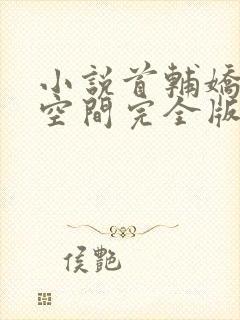 小說首輔嬌
空間完全版
侯艷